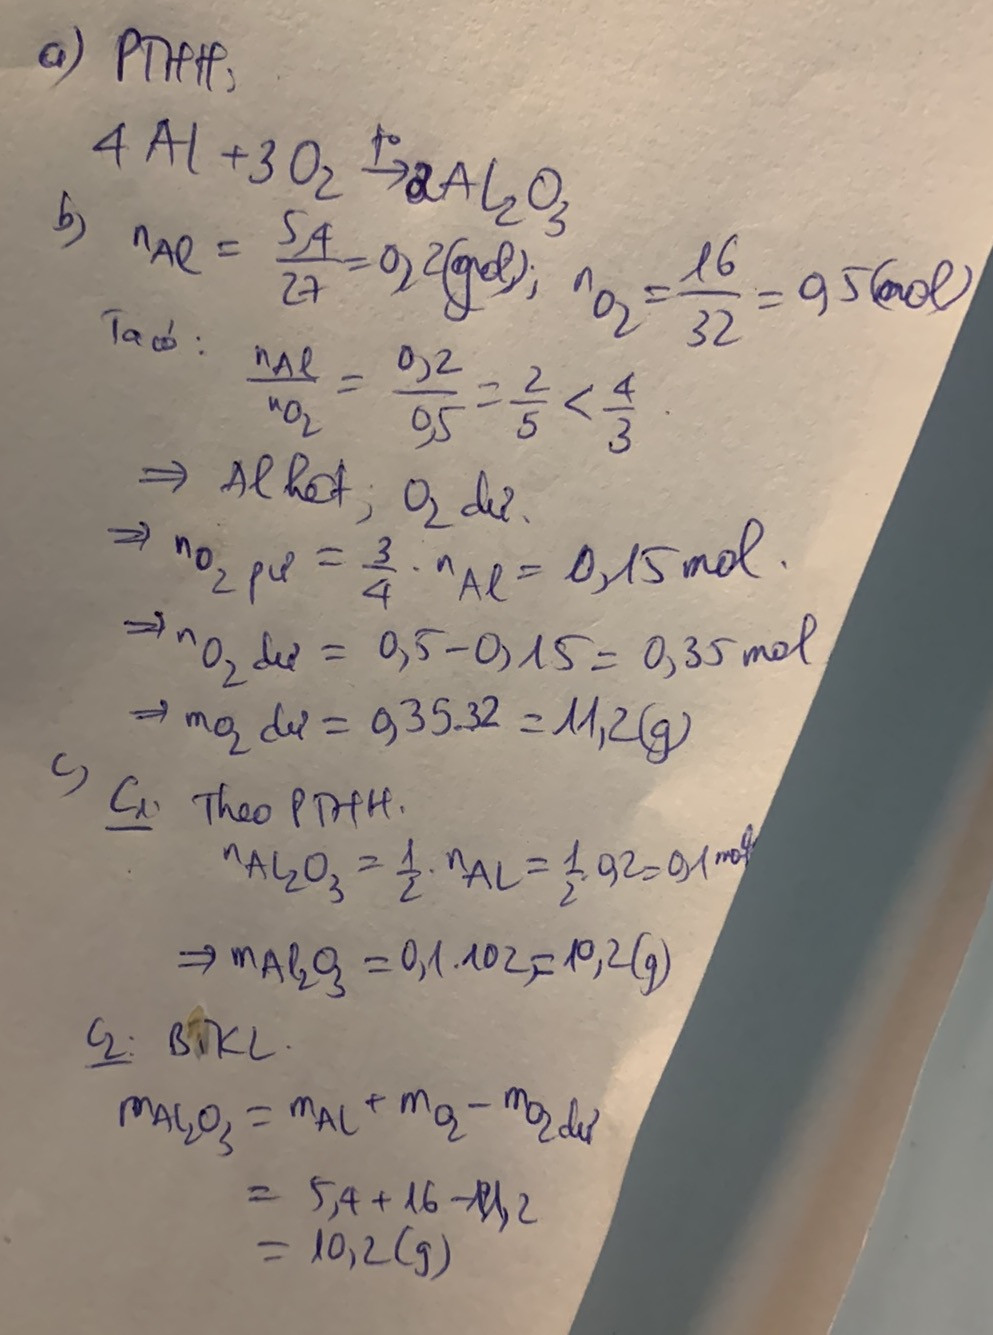 a) PTHH;
4Al + 3O₂ →(t°) 2Al₂O₃
b) nAl = 5,4/27 = 0,2(mol); nO₂ = 16/32 = 0,5(mol)
Ta có: nAl/nO₂ = 0,2/0,5 = 2/5 < 4/3.
⇒ Al hết; O₂ dư.
⇒ nO₂ pư = 3/4 . nAl = 0,15 mol.
⇒ nO₂ dư = 0,5 - 0,15 = 0,35 mol
⇒ mO₂ dư = 0,35.32 = 11,2(g)
c) C₁: Theo PTHH.
nAl₂O₃ = 1/2 . nAl = 1/2 . 0,2 = 0,1 mol
⇒ mAl₂O₃ = 0,1.102 = 10,2(g)
C₂: BTKL.
mAl₂O₃ = mAl + mO₂ - mO₂ dư
= 5,4 + 16 - 11,2
= 10,2(g)